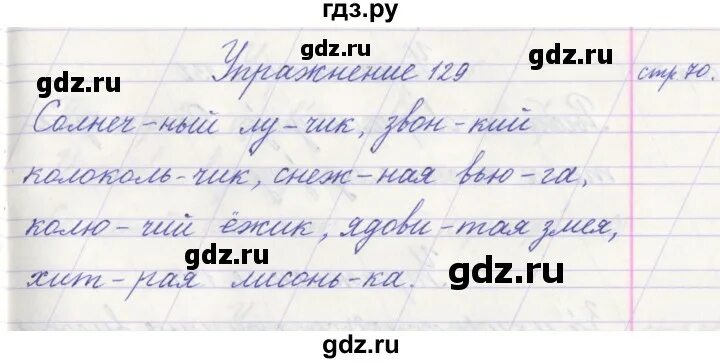 гдз.ру
gdz.ru
Упражнение 129
стр. 70.
gdz.ru
gdz.ru
Солнеч-ный лу-чик, звон-кий
gdz.ru
колоколь-чик, снеж-ная вью-га,
колю-чий ёжик, ядови-тая змея,
gdz.ru
gdz.ru
хит-рая лисонь-ка.